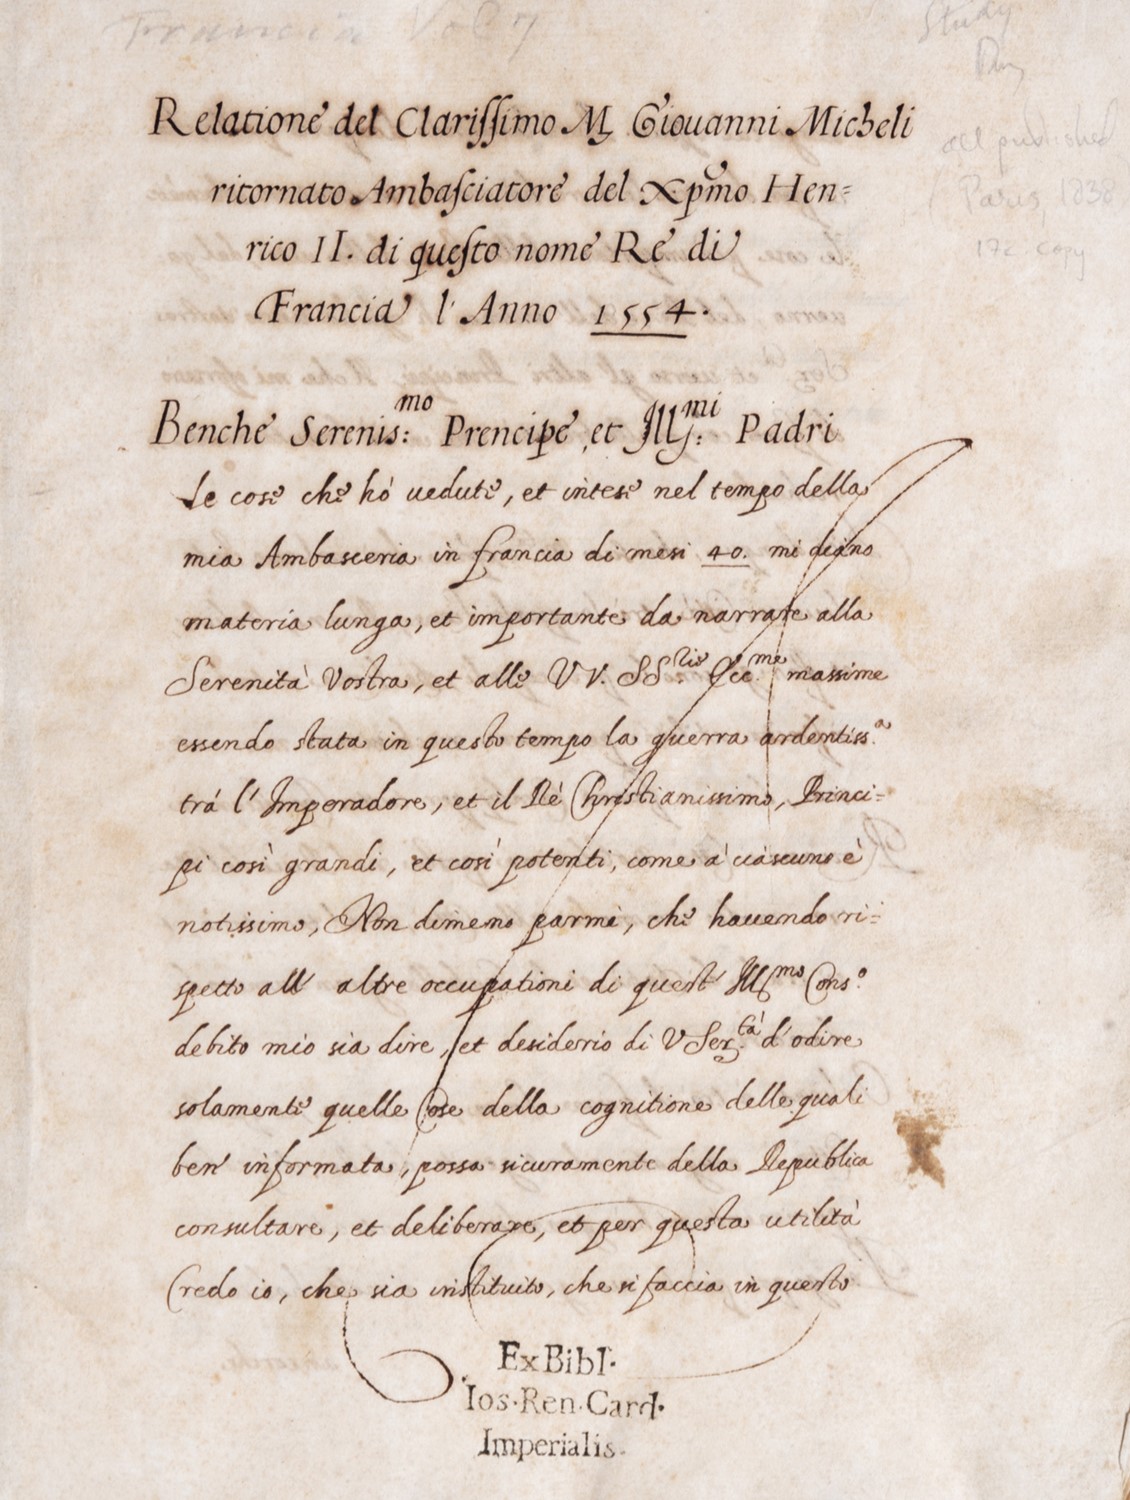 Francia Vol 7
Study
all published
Paris, 1838
17c. copy
Relatione del Clarissimo M. Giouanni Micheli
ritornato Ambasciatore del Xpmo Hen=
rico II. di questo nome Rè di
Francia l'Anno 1554.
Benche Serenis:mo Prencipe et Ill:mi Padri
Le cose che hò uedute, et intese nel tempo della
mia Ambasceria in francia di mesi 40. mi diano
materia lunga, et importante da narrare alla
Serenità Vostra, et alle VV. SS.rie Ecc.me massime
essendo stata in questo tempo la guerra ardentiss.a
trà l'Imperadore, et il Rè Christianissimo, Princi=
pi così grandi, et così potenti, come à ciascuno è
notissimo, Non dimeno parmi, che hauendo ri=
spetto all' altre occupationi di quest' Ill.mo Cons.o
debito mio sia dire, et desiderio di V Ser.tà d'odire
solamente quelle Cose della cognitione delle quali
ben' informata, possa sicuramente della Republica
consultare, et deliberare, et per questa utilità
Credo io, che sia instituito, che si faccia in questo
Ex Bibl.
Ios. Ren. Card.
Imperialis.